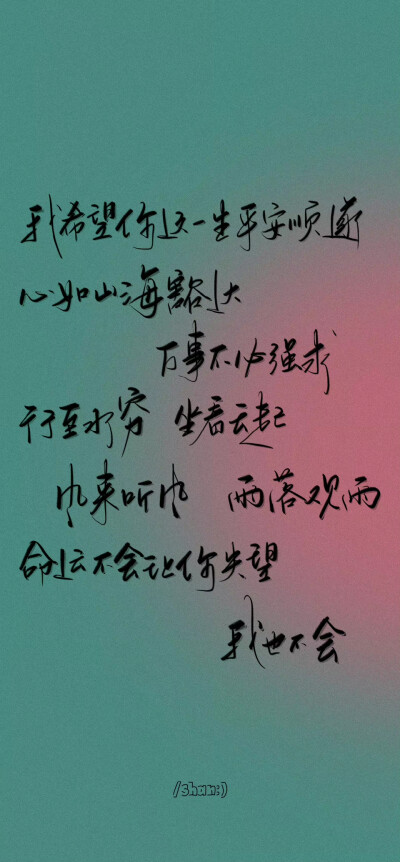 我希望你这一生平安顺遂
心如山海豁达
万事不必强求
行至水穷 坐看云起
风来听风 雨落观雨
命运不会让你失望
我也不会
/shan:)